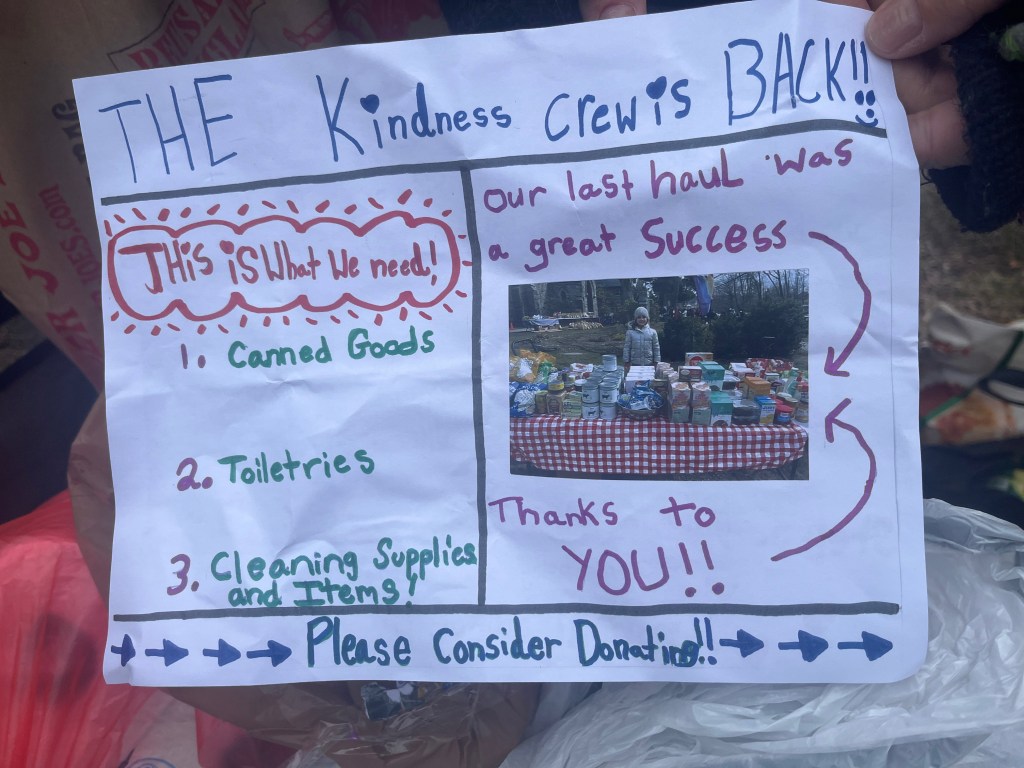 THE Kindness Crew is BACK!!
THis is What We need!
1. Canned Goods
2. Toiletries
3. Cleaning Supplies
and Items!
our last hauL was
a great Success
Thanks to
YOU!!
Please Consider Donating!!